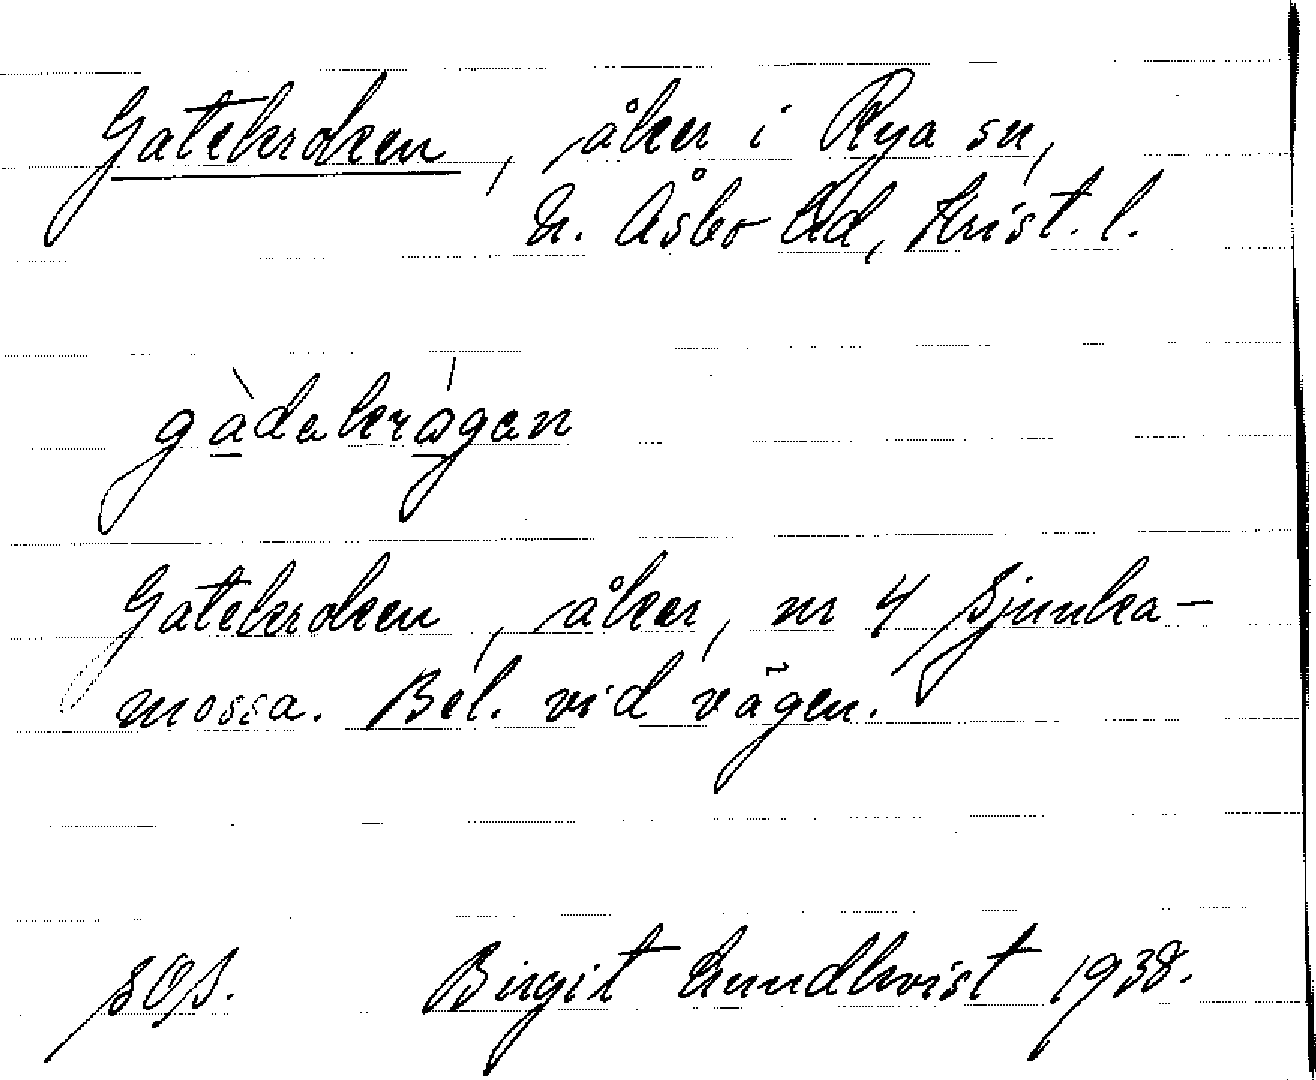 Gatekroken, åker i Rya sn,
N. Åsbo hd, Krist. l.
gàdakrågan
Gatekroken, åker, nr 4 Sjunka-
mossa. Bel. vid vägen.
Birgit Lundkvist 1938.